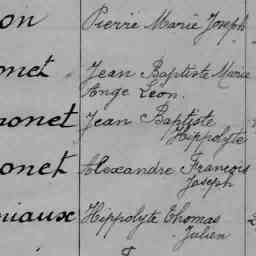 on Pierre Marie Joseph
onet Jean Baptiste Marie
Ange Léon.
ronet Jean Baptiste
Hippolyte
onet Alexandre François
Joseph
niaux Hippolyte Thomas
Julien